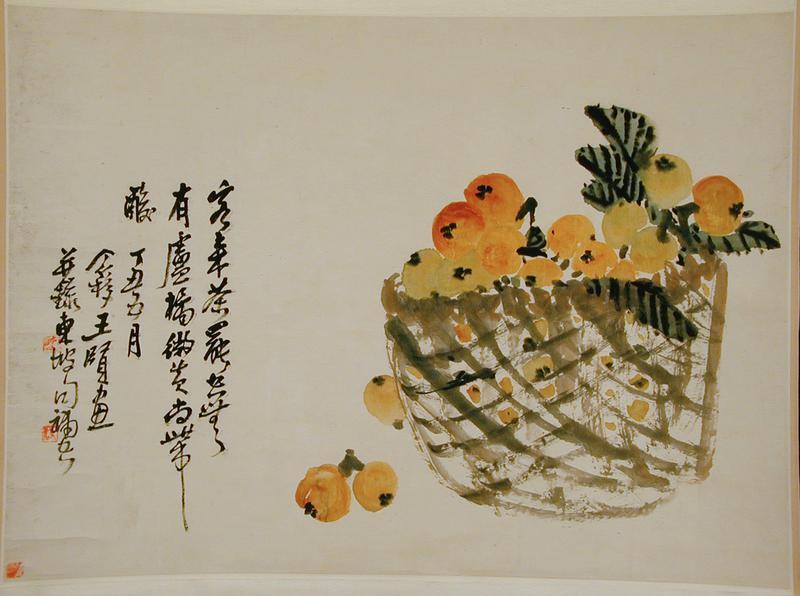 客來茶罷空無
有盧橘微黃尚帶
酸 丁丑五月
个簃王賢畫
并錄東坡句補空